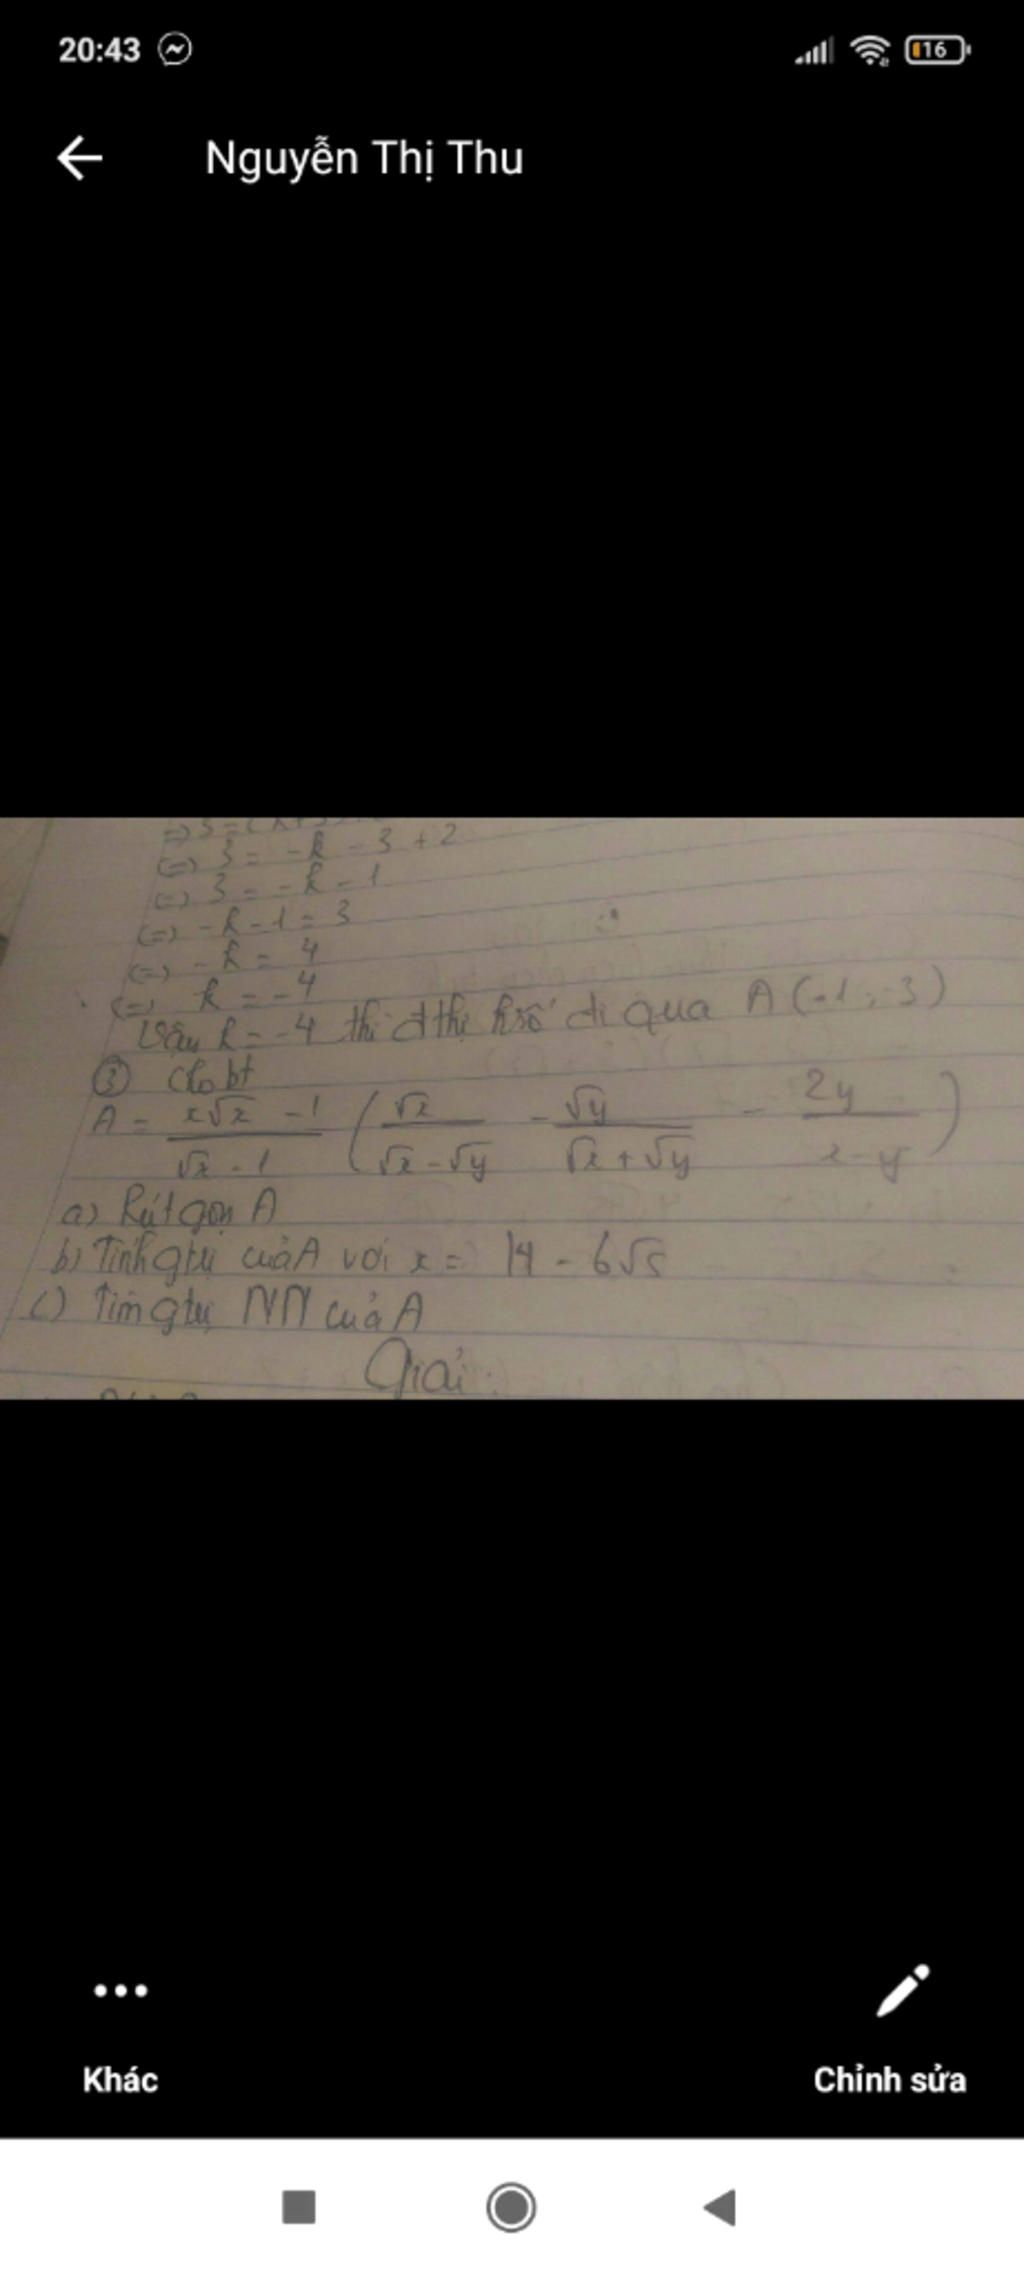 20:43 16
Nguyễn Thị Thu
(=) 3 = -k - 3 + 2
(=) 3 = -k - 1
(=) -k - 1 = 3
(=) -k = 4
(=) k = -4
Vậy k = -4 thì đthị hsố đi qua A (-1; -3)
③ Cho bt
A = x√x - 1 / √x - 1 ( √x / √x - √y - √y / √x + √y - 2y / x - y )
a) Rút gọn A
b) Tính gtrị của A với x = 14 - 6√5
c) Tìm gtrị NN của A
Giải:
Khác Chỉnh sửa